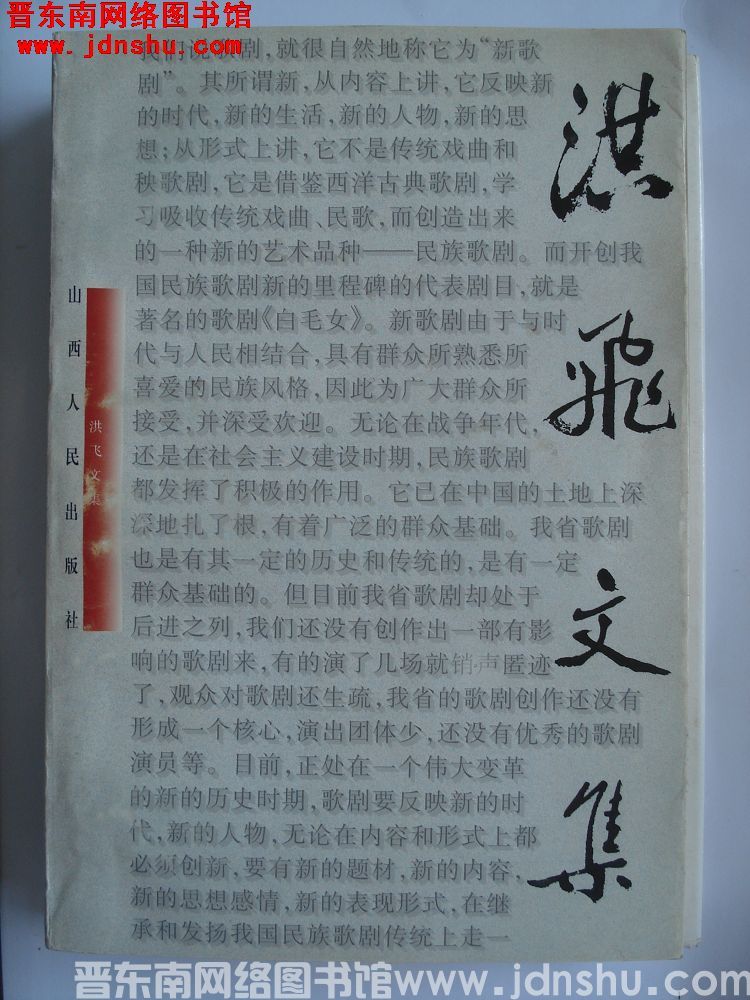 晋东南网络图书馆
www. jdnshu.com
我们说歌剧,就很自然地称它为“新歌
剧”。其所谓新,从内容上讲,它反映新
的时代,新的生活,新的人物,新的思
想;从形式上讲,它不是传统戏曲和
秧歌剧,它是借鉴西洋古典歌剧,学
习吸收传统戏曲、民歌,而创造出来
的一种新的艺术品种——民族歌剧。而开创我
国民族歌剧新的里程碑的代表剧目,就是
著名的歌剧《白毛女》。新歌剧由于与时
代与人民相结合,具有群众所熟悉所
喜爱的民族风格,因此为广大群众所
接受,并深受欢迎。无论在战争年代,
还是在社会主义建设时期,民族歌剧
都发挥了积极的作用。它已在中国的土地上深
深地扎了根,有着广泛的群众基础。我省歌剧
也是有其一定的历史和传统的,是有一定
群众基础的。但目前我省歌剧却处于
后进之列,我们还没有创作出一部有影
响的歌剧来,有的演了几场就销声匿迹
了,观众对歌剧还生疏,我省的歌剧创作还没有
形成一个核心,演出团体少,还没有优秀的歌剧
演员等。目前,正处在一个伟大变革
的新的历史时期,歌剧要反映新的时
代,新的人物,无论在内容和形式上都
必须创新,要有新的题材,新的内容,
新的思想感情,新的表现形式,在继
承和发扬我国民族歌剧传统上走一
洪飞文集
洪飞文集
山西人民出版社
晋东南网络图书馆www.jdnshu.com